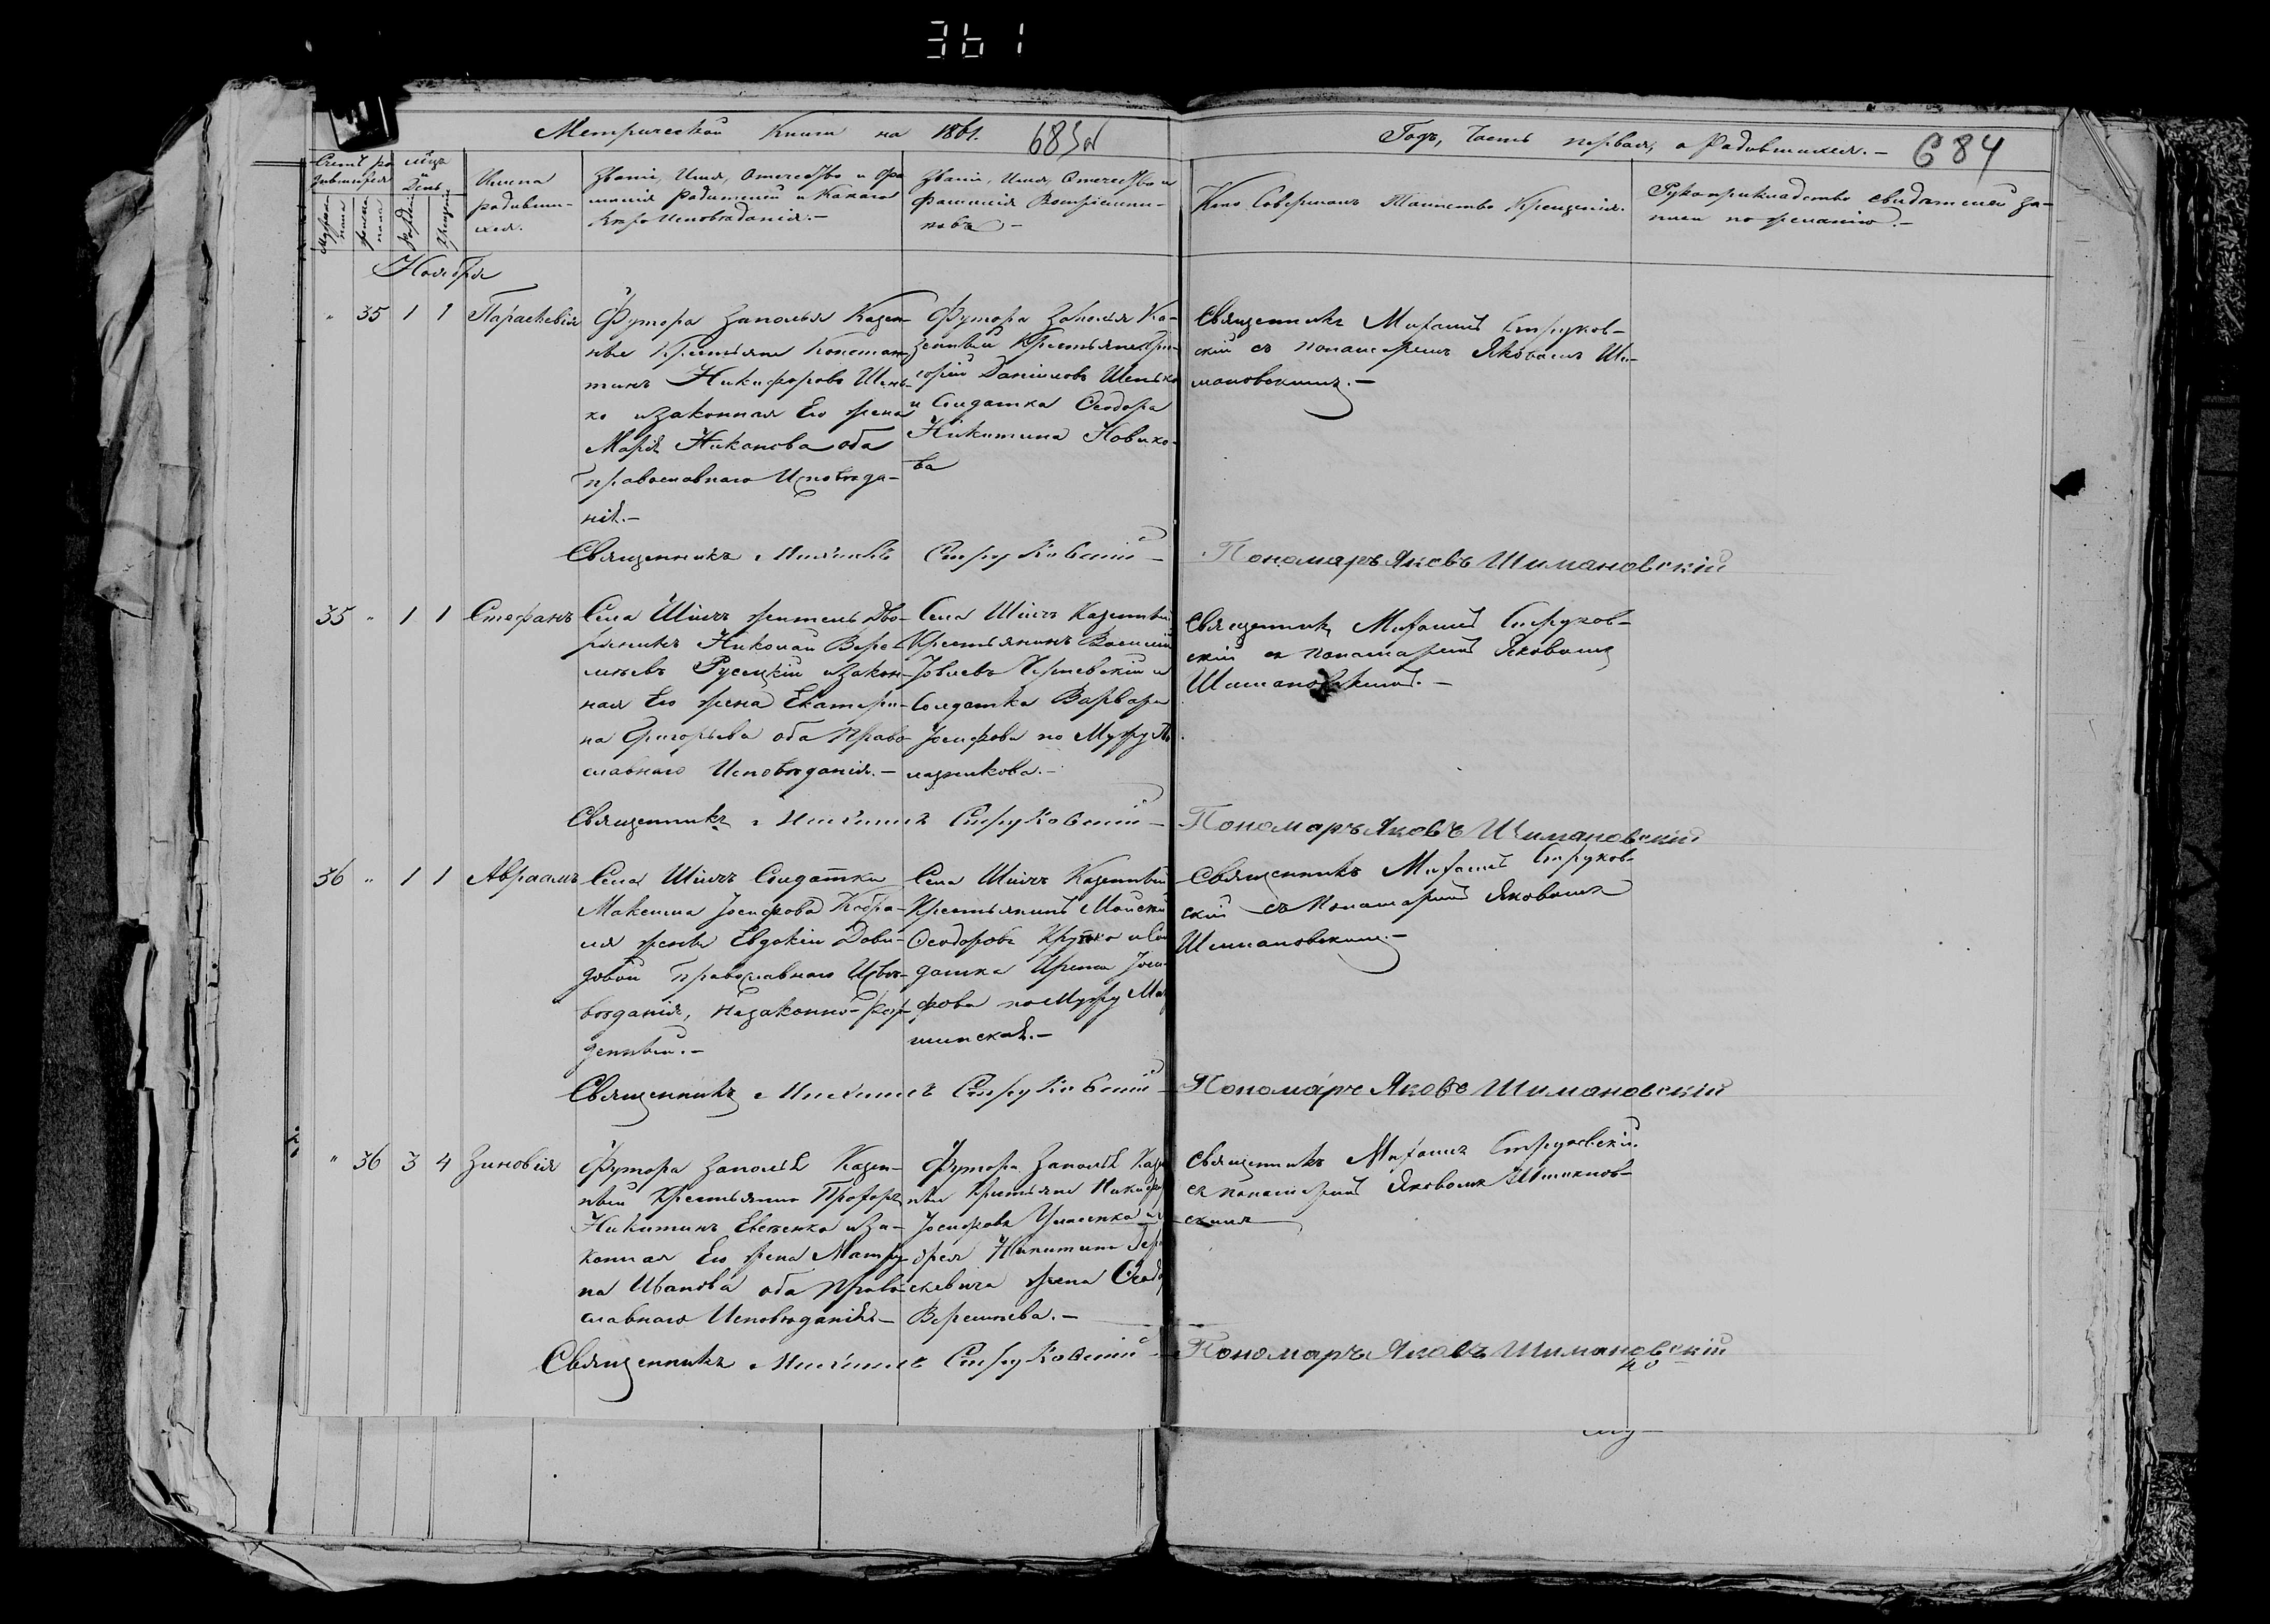 361
Метрической Книги на 1861.
683 об
Годъ, Часть первая, о Родившихся. —
684
Счетъ ро
дившихся
мѣцъ
и
День
Имена
родивши-
хся.
Званіе, Имя, Отечество и фа
милія родителей и Какого
Вѣроисповѣданія. —
Званіе, Имя, Отечество и
фамилія Воспріемни-
ковъ —
Кто Совершалъ Таинство Крещенія.
Рукоприкладство свидѣтелей за-
писи по желанію. —
Мужеска
пола
женска
пола
Рожденія
Крещенія
Ноября
" 35 1 1 Параскевія
Футора Заполья Казен-
ные Крестьяне Констан-
тинъ Никифоровъ Шень-
ко и законная Его жена
Марія Иванова оба
православнаго Исповѣда-
нія. —
Футора Заполья Ка-
зенный Крестьянинъ Гри-
горій Даніиловъ Шенько
и Солдатка Ѳеодора
Никитина Новико-
ва
Священникъ Михаилъ Струков-
скій съ понамаремъ Яковомъ Ши-
мановскимъ. —
Священникъ Михаилъ Струковскій —
Пономарь Яковъ Шимановскій
35 " 1 1 Стефанъ
Села житель Дво-
рянинъ Николай Вереѣ-
мѣевъ Русецкій и закон-
ная Его жена Екатери-
на Григорьева оба Право-
славнаго Исповѣданія. —
Села Казенный
Крестьянинъ Василій
Іовлевъ и
Солдатка Варвара
Іосифова по Мужу
Священникъ Михаилъ Струков-
скій съ понамаремъ Яковомъ
Шимановскимъ. —
Священникъ Михаилъ Струковскій —
Пономарь Яковъ Шимановскій
36 " 1 1 Авраамъ
Села Солдатки
Максима Іосифова
ля жены Евдокіи Дави-
довой православнаго Испо-
вѣданія, незаконно-рож-
денный. —
Села Казенный
Крестьянинъ Моисей
Ѳеодоровъ и Сол
датка Ирина Іоси-
фова по Мужу Ма
шинская. —
Священникъ Михаилъ Струков-
скій съ понамаремъ Яковомъ
Шимановскимъ. —
Священникъ Михаилъ Струковскій —
Пономарь Яковъ Шимановскій
" 36 3 4 Зиновія
Футора Заполья Казен-
ный Крестьянинъ Прохоръ
Никитинъ Евсѣенко и за-
конная Его жена Матро-
на Иванова оба Право-
славнаго Исповѣданія —
Футора Заполья Казен
ные Крестьяне Никифоръ
Іосифовъ и
дрея Никитина
скевича жена Ѳеодо
Веремѣева. —
Священникъ Михаилъ Струковскій
съ понамаремъ Яковомъ Шиманов-
скимъ
Священникъ Михаилъ Струковскій —
Пономарь Яковъ Шимановскій